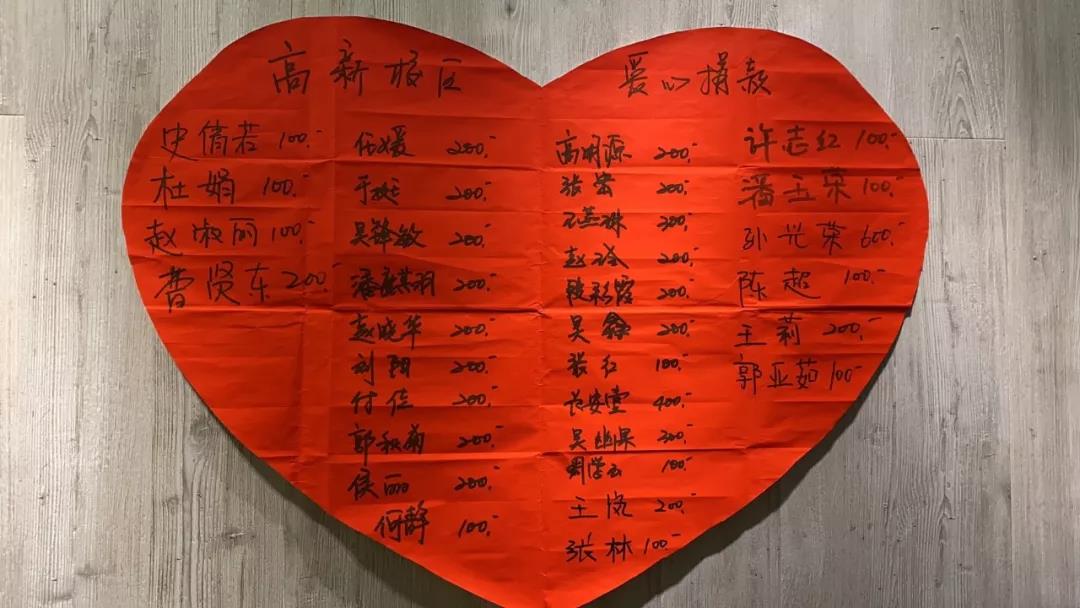 高新校区 爱心捐款
史倩若 100.-
杜娟 100.-
赵淑丽 100.-
曹贤东 200.-
任媛 200.-
于 200.-
吴锋敏 200.-
潘麒羽 200.-
赵晓华 200.-
刘阳 200.-
付佳 200.-
郭秋菊 200.-
侯丽 200.-
何静 100.-
高明源 200.-
张蕾 200.-
200.-
赵玲 200.-
段彩霞 200.-
吴鑫 200.-
张红 100.-
长安堂 400.-
吴幽果 300.-
周学云 100.-
王悦 200.-
张林 100.-
许志红 100.-
潘玉荣 100.-
孙光荣 600.-
陈超 100.-
王莉 200.-
郭亚茹 100.-